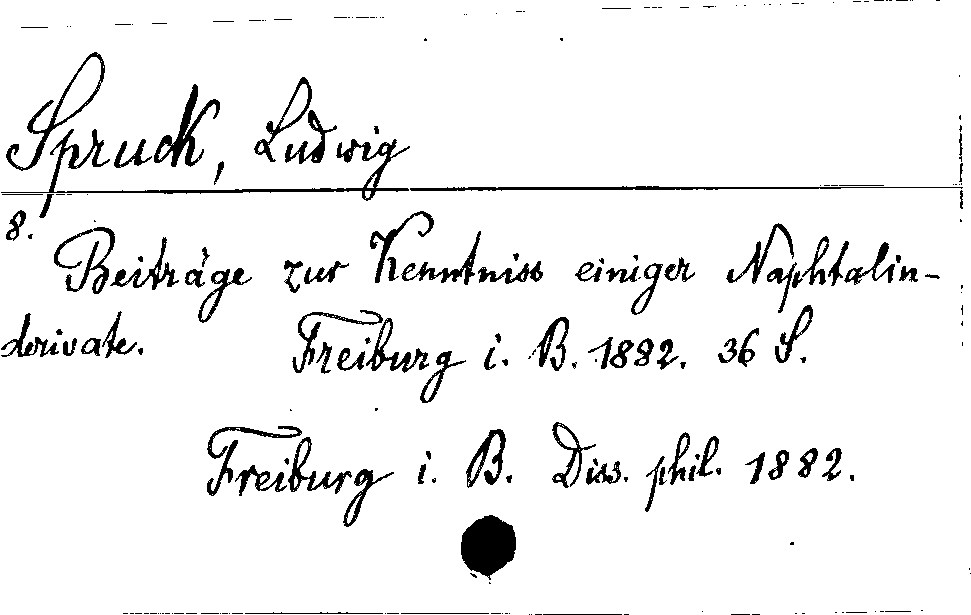 Spruck, Ludwig
8.
Beiträge zur Kenntniss einiger Naphtalin-
derivate. Freiburg i. B. 1882. 36 S.
Freiburg i. B. Diss. phil. 1882.